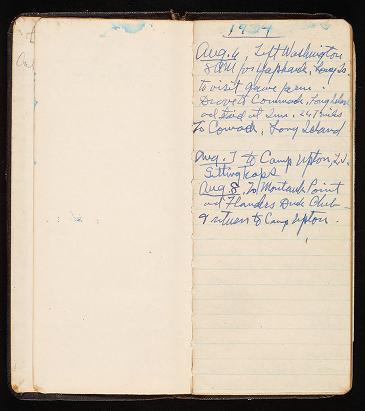 1934
Aug. 6, Left Washington
8 AM for Yaphank, Long Is.
to visit game farm.
Drove to Commack, Long Island
and stayed at Inn. 267 miles
To Comack, Long Island
Aug. 7 to Camp Upton, L.I.
Setting traps
Aug. 8. To Montauk Point
and Flanders Duck Club
& return to Camp Upton.